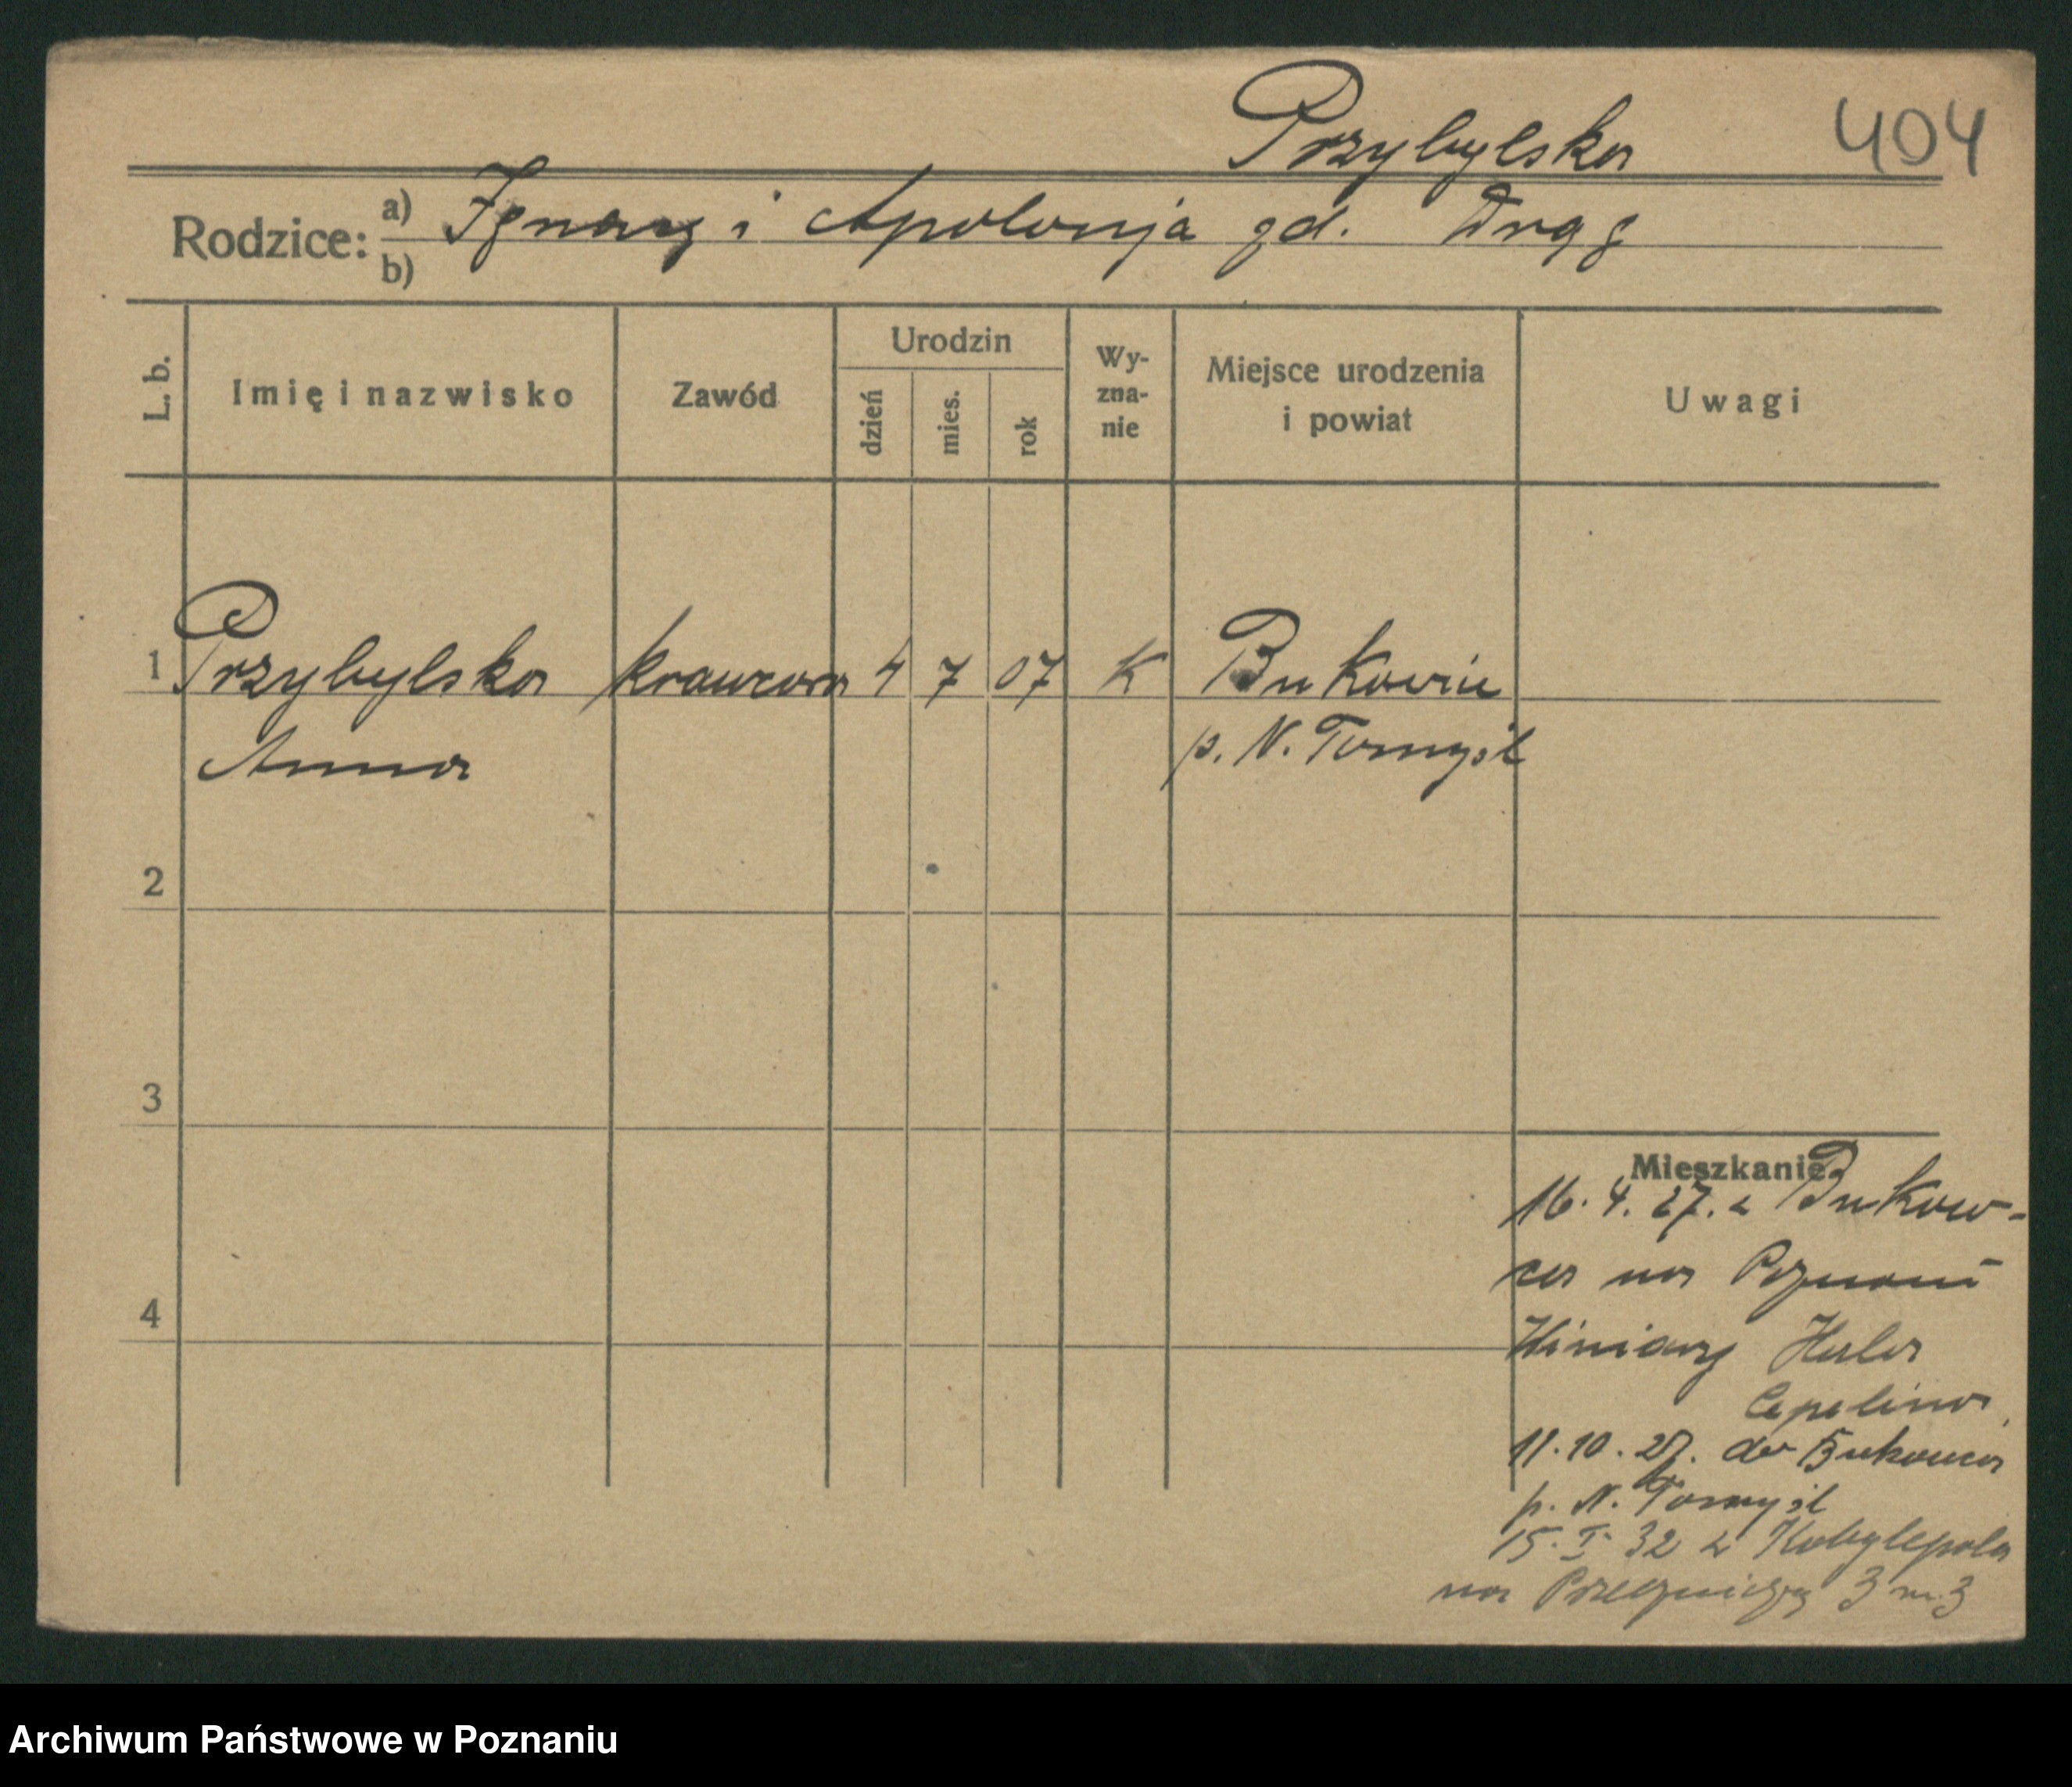 Przybylska 404
Rodzice: a) Ignacy i Apolonja zd. Drąg
b)
L. b. Imię i nazwisko Zawód Urodzin dzień mies. rok Wy-zna-nie Miejsce urodzenia i powiat Uwagi
1 Przybylska krawcowa 4 7 07 K Bukowiec
Anna p. N. Tomyśl
2
3
Mieszkanie
16. 4. 27. z Bukow-
ca na Poznań
4
Winiary Hala
Cepelina
11. 10. 27. do Bukowca
p. N. Tomyśl
15. I. 32 z Kobylepola
na 3 m. 3
Archiwum Państwowe w Poznaniu